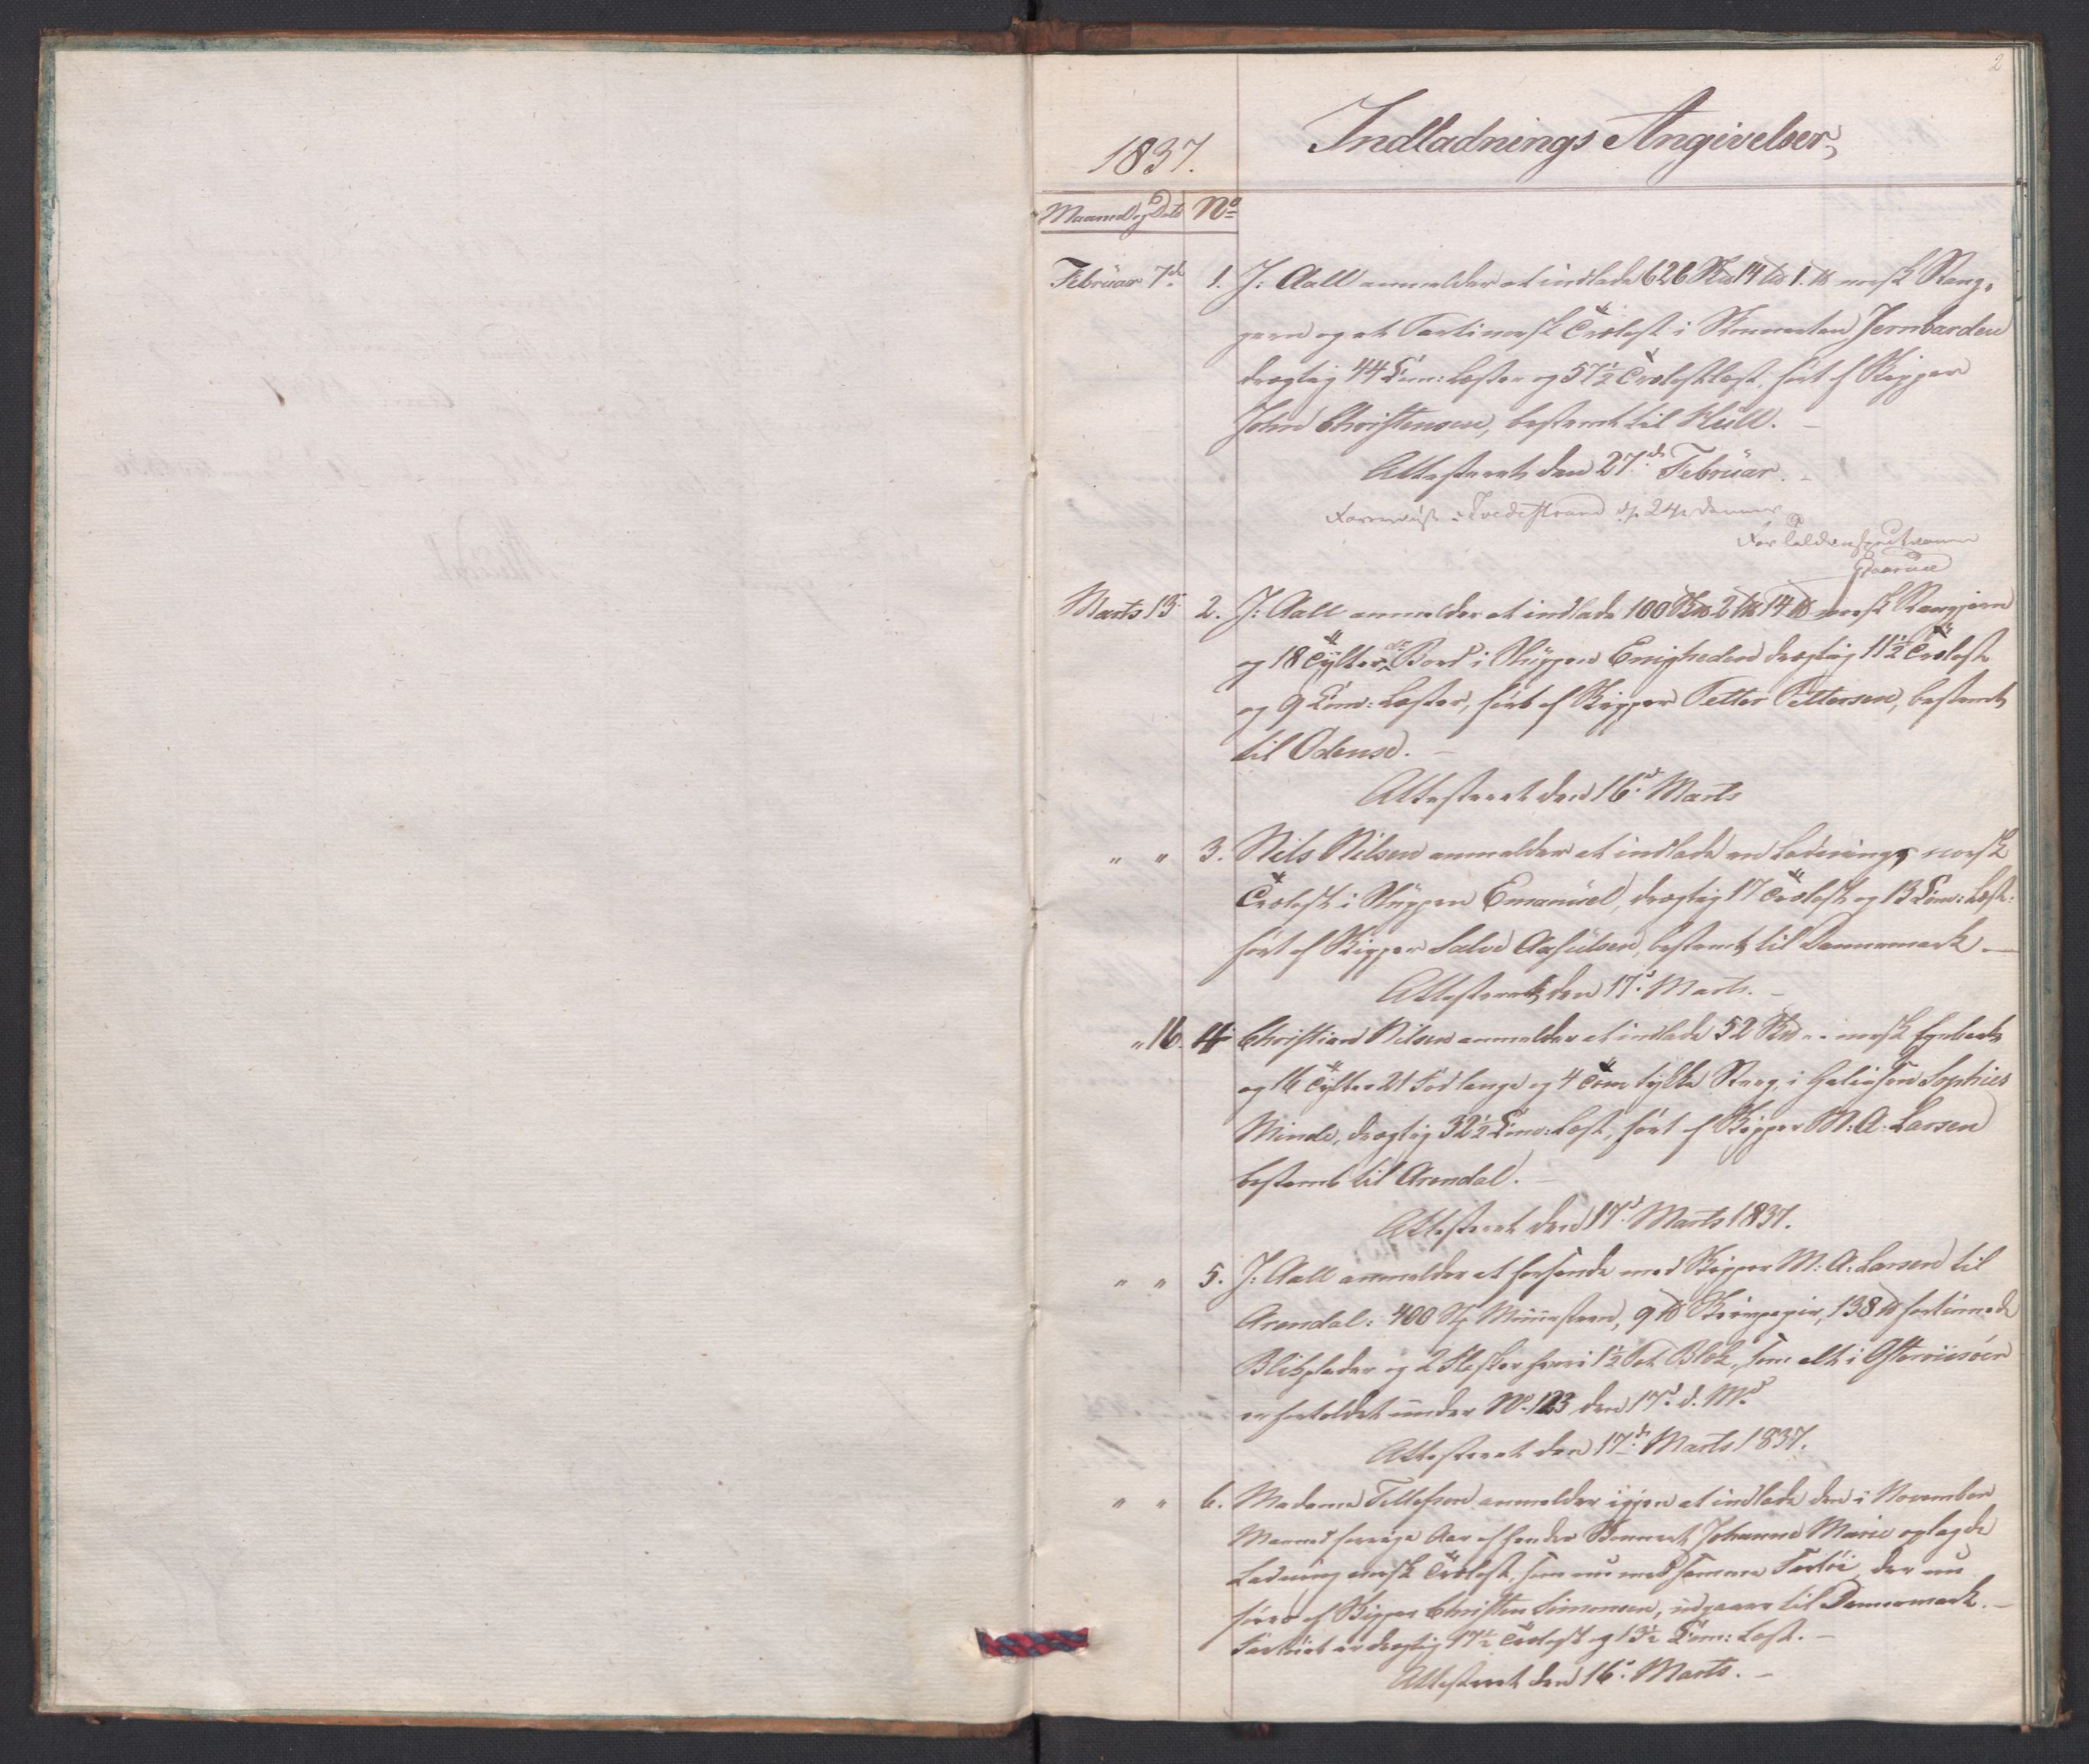 2
1837.
Indladnings Angivelser,
Maaned og Dato No
Februar 7de 1. J: Aall anmelder at indlade 626 Sk℔ 14 L℔ 1. ℔ norsk Stang-
jern og et Parti norsk Trælast i Skonnerten Jernbarden
drægtig 44 Com: Læster og 57½ Trælastlæst, ført af Skipper
John Christensen, bestemt til Hull. –
Attesteret den 27de Februar. –
Tvedestrand 24
Marts 15 2. J: Aall anmelder at indlade 100 Sk℔ 2 L℔ 14 ℔ norsk Stangjern
og 18 Tylter Bord i Sluppen Enigheden drægtig 11½ Trælast
og 9 Com: Læster, ført af Skipper Petter Pettersen, bestemt
til Odense. –
Attesteret den 16d Marts
" " 3. Nils Nilsen anmelder at indlade en Ladning norsk
Trælast i Sluppen Emanuel, drægtig 17 Trælast og 13 Com: Læst:
ført af Skipper Salve Aasulsen, bestemt til Dannemark. –
Attesteret den 17d Marts. –
" 16. 4 Christian Nilsen anmelder at indlade 52 Sk℔ " " norsk
og 16 Tylter 21 Fod lange og 4 Tom tykke i Galeasen Sophies
Minde, drægtig 32½ Com: Læst, ført af Skipper M: A. Larsen
bestemt til Arendal. –
Attesteret den 17d Marts 1837.
" " 5. J: Aall anmelder at forsende med Skipper M: A. Larsen til
Arendal: 400 Stk Muursteen, 9 ℔ 138 ℔ fortinnede
Blikplader og 2 Flasker hvori 1½ Pot Blæk, som alt i Østerriisöer
er fortoldet under No 123 den 17d d. Md
Attesteret den 17de Marts 1837.
" " 6. Madame Tellefsen anmelder igjen at indlade den i November
Maaned forrige Aar af hendes Skonnert Johanne Marie oplagde
Ladning norsk Trælast, som nu med samme Fartöi, der nu
føres af Skipper Christen Simonsen, udgaaer til Dannemark. –
Fartöiet er drægtig 17½ Trælast og 13½ Com: Læst. –
Attesteret den 16d Marts. –